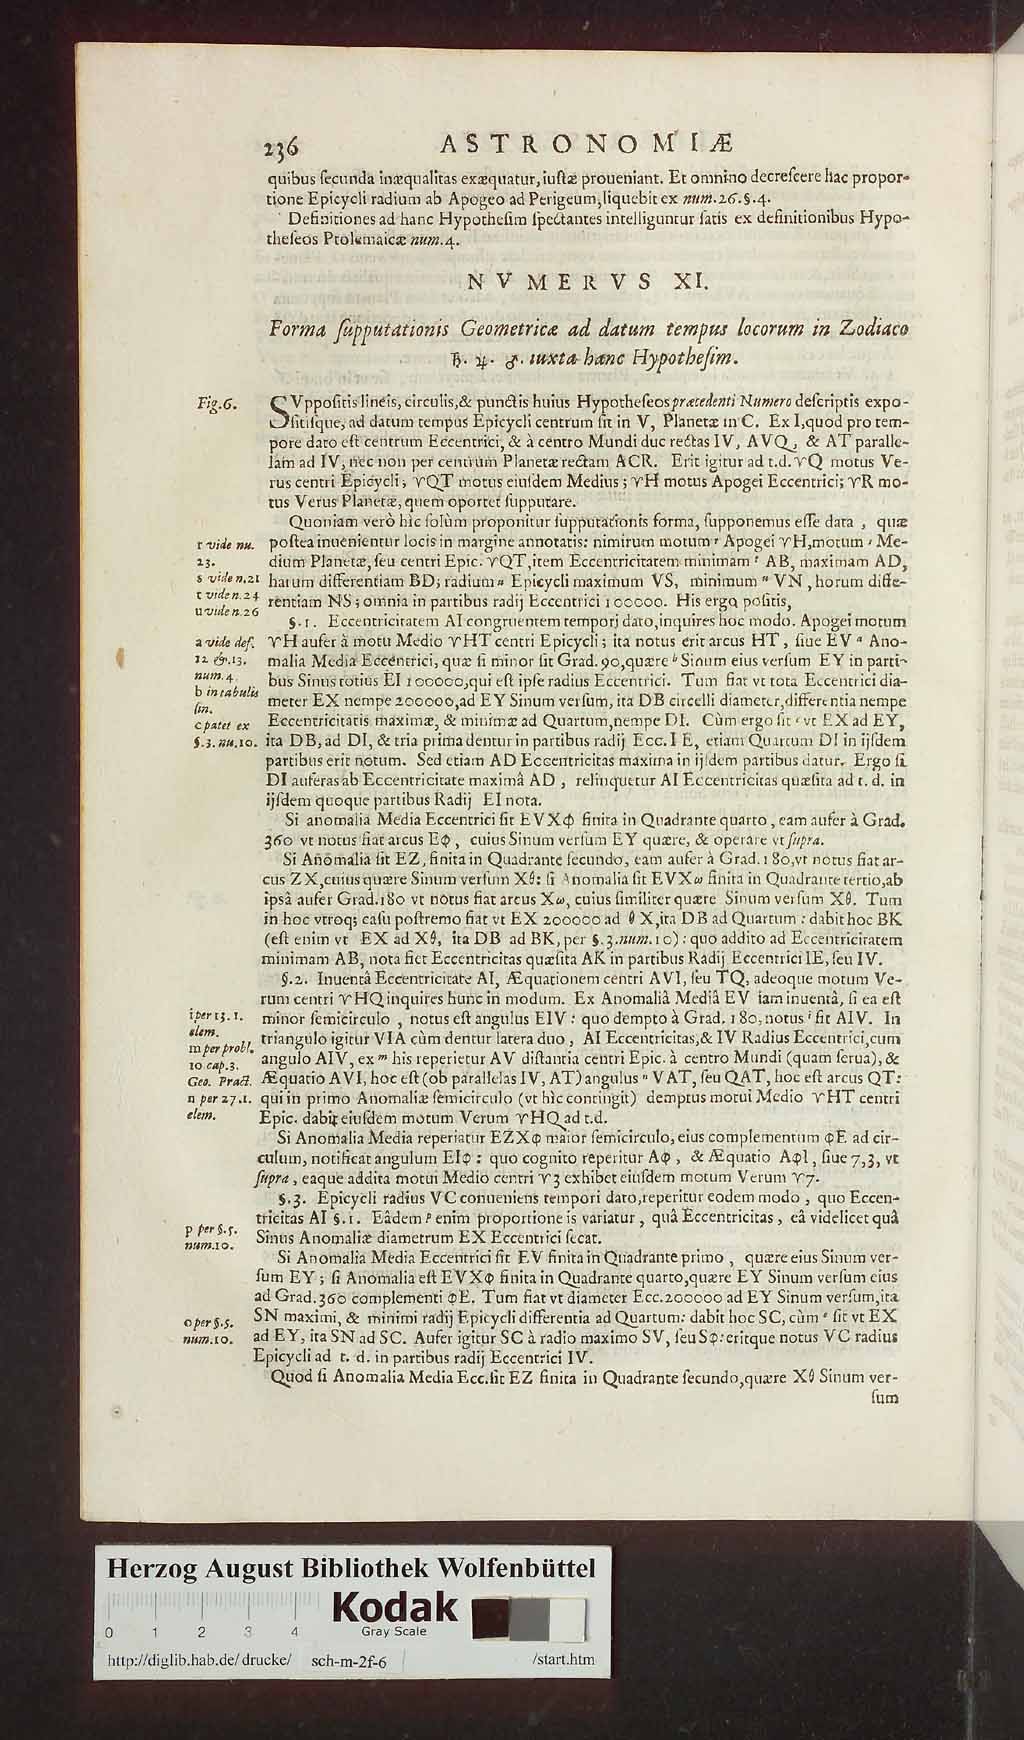 236 ASTRONOMIÆ
quibus ſecunda inæqualitas exæquatur, iuſtæ proueniant. Et omnino decreſcere hac propor-
tione Epicycli radium ab Apogeo ad Perigeum, liquebit ex num. 26. §. 4.
Definitiones ad hanc Hypotheſim ſpectantes intelliguntur ſatis ex definitionibus Hypo-
theſeos Ptolemaicæ num. 4.
NVMERVS XI.
Forma ſupputationis Geometricæ ad datum tempus locorum in Zodiaco
♄. ♃. ♂. iuxta hanc Hypotheſim.
Fig. 6.
SVppoſitis lineis, circulis, & punctis huius Hypotheſeos præcedenti Numero deſcriptis expo-
ſitiſque, ad datum tempus Epicycli centrum ſit in V, Planetæ in C. Ex I, quod pro tem-
pore dato eſt centrum Eccentrici, & à centro Mundi duc rectas IV, AVQ, & AT paralle-
lam ad IV, nec non per centrum Planetæ rectam ACR. Erit igitur ad t.d. ♈Q motus Ve-
rus centri Epicycli; ♈QT motus eiuſdem Medius; ♈H motus Apogei Eccentrici; ♈R mo-
tus Verus Planetæ, quem oportet ſupputare.
Quoniam verò hìc ſolùm proponitur ſupputationis forma, ſupponemus eſſe data, quæ
r vide nu. 23.
s vide n. 21
t vide n. 24
u vide n. 26
poſtea inuenientur locis in margine annotatis: nimirum motum r Apogei ♈H, motum s Me-
dium Planetæ, ſeu centri Epic. ♈QT, item Eccentricitatem minimam t AB, maximam AD,
harum differentiam BD; radium u Epicycli maximum VS, minimum u VN, horum diffe-
rentiam NS; omnia in partibus radij Eccentrici 100000. His ergo poſitis,
§. 1. Eccentricitatem AI congruentem tempori dato, inquires hoc modo. Apogei motum
a vide def. 12. & 13. num. 4
b in tabulis ſin.
c patet ex §. 3. nu. 10.
♈H aufer à motu Medio ♈HT centri Epicycli; ita notus erit arcus HT, ſiue EV a Ano-
malia Media Eccentrici, quæ ſi minor ſit Grad. 90, quære b Sinum eius verſum EY in parti-
bus Sinus totius EI 100000, qui eſt ipſe radius Eccentrici. Tum fiat vt tota Eccentrici dia-
meter EX nempe 200000, ad EY Sinum verſum, ita DB circelli diameter, differentia nempe
Eccentricitatis maximæ, & minimæ ad Quartum, nempe DI. Cùm ergo ſit c vt EX ad EY,
ita DB, ad DI, & tria prima dentur in partibus radij Ecc. I E, etiam Quartum DI in ijſdem
partibus erit notum. Sed etiam AD Eccentricitas maxima in ijſdem partibus datur. Ergo ſi
DI auferas ab Eccentricitate maximâ AD, relinquetur AI Eccentricitas quæſita ad t. d. in
ijſdem quoque partibus Radij EI nota.
Si anomalia Media Eccentrici ſit EVXΦ finita in Quadrante quarto, eam aufer à Grad.
360 vt notus fiat arcus EΦ, cuius Sinum verſum EY quære, & operare vt ſupra.
Si Anomalia ſit EZ, finita in Quadrante ſecundo, eam aufer à Grad. 180, vt notus fiat ar-
cus ZX, cuius quære Sinum verſum Xθ: ſi Anomalia ſit EVXω finita in Quadrante tertio, ab
ipsâ aufer Grad. 180 vt notus fiat arcus Xω, cuius ſimiliter quære Sinum verſum Xθ. Tum
in hoc vtroq; caſu poſtremo fiat vt EX 200000 ad θX, ita DB ad Quartum: dabit hoc BK
(eſt enim vt EX ad Xθ, ita DB ad BK, per §. 3. num. 10): quo addito ad Eccentricitatem
minimam AB, nota fiet Eccentricitas quæſita AK in partibus Radij Eccentrici IE, ſeu IV.
§. 2. Inuentâ Eccentricitate AI, Æquationem centri AVI, ſeu TQ, adeoque motum Ve-
rum centri ♈HQ inquires hunc in modum. Ex Anomaliâ Mediâ EV iam inuentâ, ſi ea eſt
i per 13. 1. elem.
m per probl. 10 cap. 3. Geo. Pract.
n per 27. 1. elem.
minor ſemicirculo, notus eſt angulus EIV: quo dempto à Grad. 180, notus i ſit AIV. In
triangulo igitur VIA cùm dentur latera duo, AI Eccentricitas, & IV Radius Eccentrici, cum
angulo AIV, ex m his reperietur AV diſtantia centri Epic. à centro Mundi (quam ſerua), &
Æquatio AVI, hoc eſt (ob parallelas IV, AT) angulus n VAT, ſeu QAT, hoc eſt arcus QT:
qui in primo Anomaliæ ſemicirculo (vt hìc contingit) demptus motui Medio ♈HT centri
Epic. dabit eiuſdem motum Verum ♈HQ ad t.d.
Si Anomalia Media reperiatur EZXΦ maior ſemicirculo, eius complementum ΦE ad cir-
culum, notificat angulum EIΦ: quo cognito reperitur AΦ, & Æquatio AΦI, ſiue 7, 3, vt
ſupra, eaque addita motui Medio centri ♈3 exhibet eiuſdem motum Verum ♈7.
§. 3. Epicycli radius VC conueniens tempori dato, reperitur eodem modo, quo Eccen-
tricitas AI §. 1. Eâdem p enim proportione is variatur, quâ Eccentricitas, eâ videlicet quâ
p per §. 5. num. 10.
Sinus Anomaliæ diametrum EX Eccentrici ſecat.
Si Anomalia Media Eccentrici ſit EV finita in Quadrante primo, quære eius Sinum ver-
ſum EY; ſi Anomalia eſt EVXΦ finita in Quadrante quarto, quære EY Sinum verſum eius
ad Grad. 360 complementi ΦE. Tum fiat vt diameter Ecc. 200000 ad EY Sinum verſum, ita
o per §. 5. num. 10.
SN maximi, & minimi radij Epicycli differentia ad Quartum: dabit hoc SC, cùm o ſit vt EX
ad EY, ita SN ad SC. Aufer igitur SC à radio maximo SV, ſeu SΦ: eritque notus VC radius
Epicycli ad t. d. in partibus radij Eccentrici IV.
Quod ſi Anomalia Media Ecc. ſit EZ finita in Quadrante ſecundo, quære Xθ Sinum ver-
ſum
Herzog August Bibliothek Wolfenbüttel
Kodak
Gray Scale
0 1 2 3 4
http://diglib.hab.de/drucke/ sch-m-2f-6 /start.htm